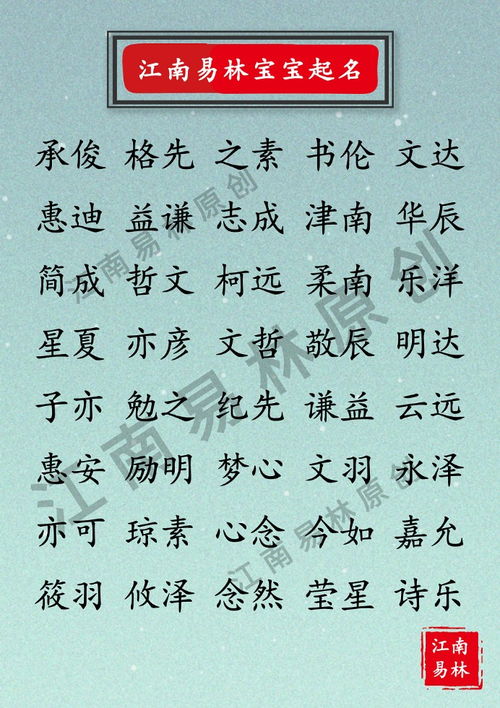 江南易林宝宝起名
承俊 格先 之素 书伦 文达
惠迪 益谦 志成 津南 华辰
简成 哲文 柯远 柔南 乐洋
星夏 亦彦 文哲 敬辰 明达
子亦 勉之 纪先 谦益 云远
惠安 励明 梦心 文羽 永泽
亦可 琼素 心念 今如 嘉允
筱羽 攸泽 念然 莹星 诗乐
江南易林原创
江南易林原创
江南易林原创
江南
易林